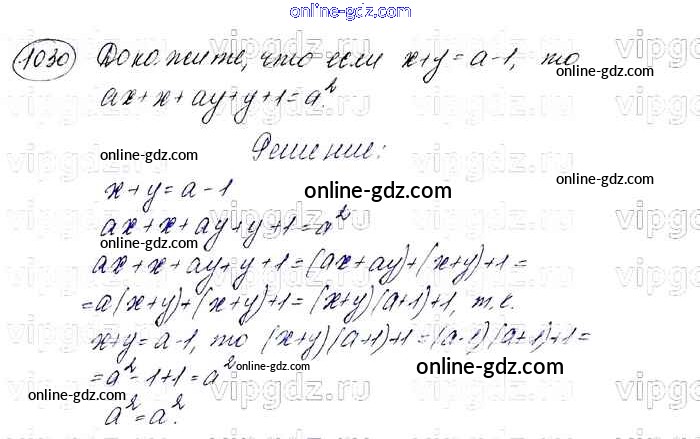 online-gdz.com
1030 Докажите, что если x+y=a-1, то
online-gdz.com
ax+x+ay+y+1=a².
Решение:
online-gdz.com
online-gdz.com
x+y=a-1
online-gdz.com
ax+x+ay+y+1=a²
online-gdz.com
ax+x+ay+y+1=(ax+ay)+(x+y)+1=
=a(x+y)+(x+y)+1=(x+y)(a+1)+1, т.к.
online-gdz.com
x+y=a-1, то (x+y)(a+1)+1=(a-1)(a+1)+1=
=a²-1+1=a²
online-gdz.com
online-gdz.com
a²=a².
online-gdz.com